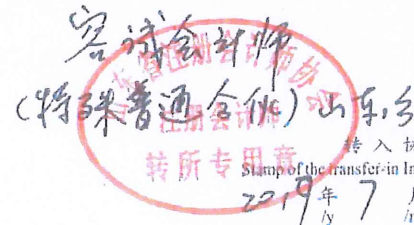 容诚会计师
(特殊普通合伙)山东分
注册会计师协会
注册会计师
转所专用章
转入协
Stamp of the transfer-in In
2019年7月
/y /m